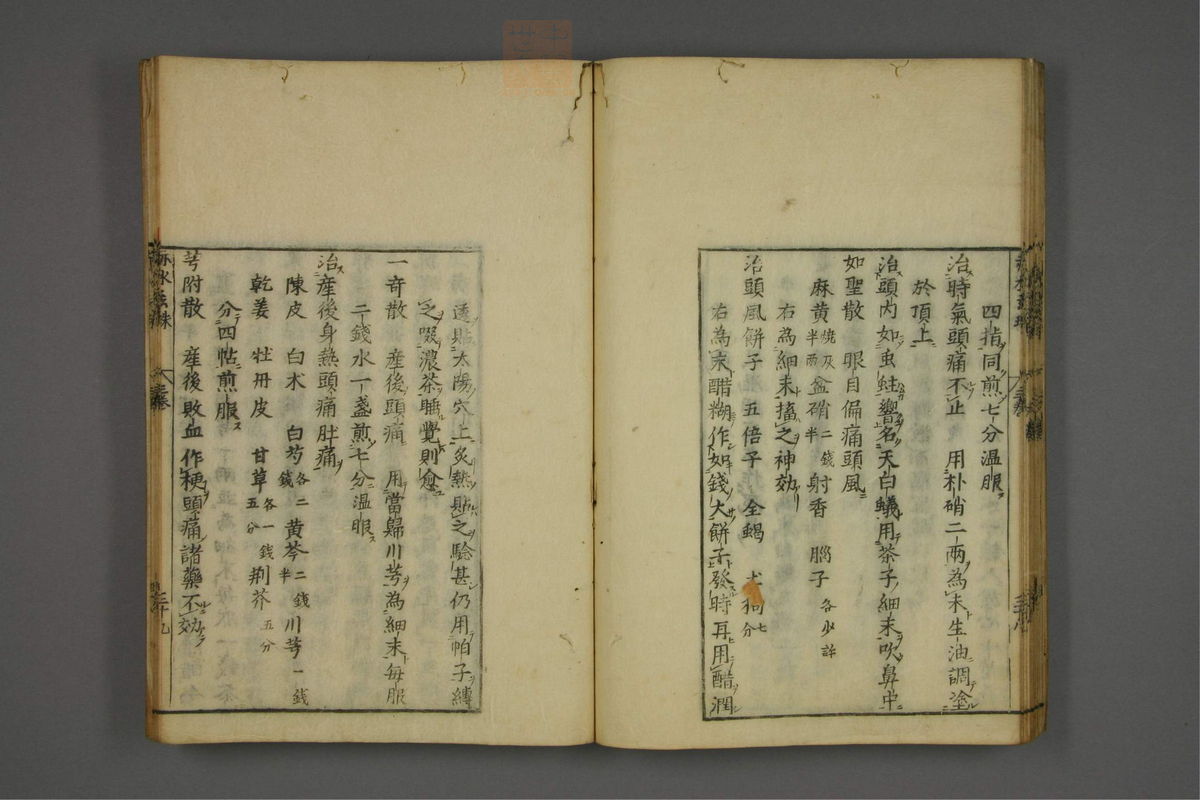 四指同煎七分温服
治時氣頭痛不止 用朴硝二兩為末生油調塗
於頂上
治頭内如虫蛀響名天白蟻用茶子細末吹鼻中
如聖散 眼目偏痛頭風
麻黄燒灰半兩 盆硝二錢半 射香 腦子各少許
右為細末搐之神効
治頭風餅子 五倍子 全蝎 土狗七分
右為末醋糊作如錢大餅子發時再用醋潤
透貼太陽穴上炙熱貼之驗甚仍用帕子縛
之啜濃茶睡覺則愈
一奇散 産後頭痛 用當歸川芎為細末每服
二錢水一盞煎七分温服
治産後身熱頭痛肚痛
陳皮 白术 白芍各二錢 黄芩二錢半 川芎一錢
乾姜 牡丹皮 甘草各一錢五分 荆芥五分
分四帖煎服
芎附散 産後敗血作梗頭痛諸藥不効
赤水玄珠
三卷
三十九